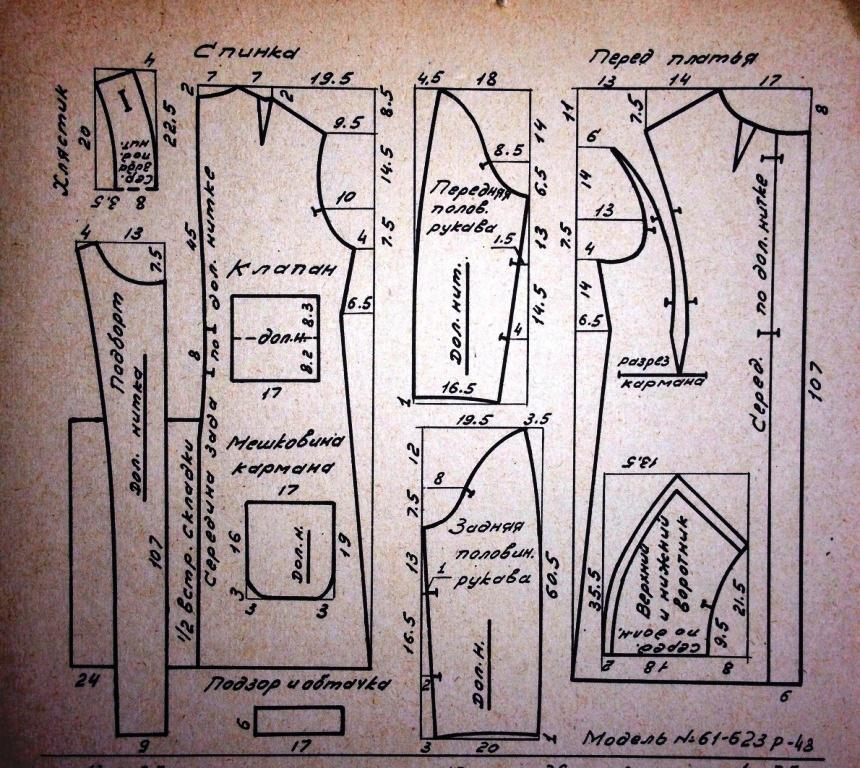 Спинка
Перед платья
4
7
7
19.5
4.5
18
13
14
17
Хлястик
20
22.5
сер. зада под. нит.
3.5
8
2
2
8.5
9.5
14.5
10
7.5
4
6.5
45
8
Середина зада по дол. нитке
1/2 встр. складки
24
4
13
7.5
Подборт
Дол. нитка
107
9
Клапан
дол.н.
8.3
8.2
17
Мешковина
кармана
17
16
19
Дол.н.
3
3
3
Подзор и обтачка
6
17
14
8.5
6.5
Передняя
полов.
рукава
1.5
13
Дол. нит.
14.5
4
16.5
1
19.5
3.5
12
8
7.5
Задняя
половин.
рукава
13
1
60.5
16.5
Дол. н.
2
3
20
1
11
7.5
8
6
14
13
7.5
4
14
6.5
разрез
кармана
Серед. по дол. нитке
107
6
13.5
35.5
Верхний
и нижний
воротник
серед.
по долн.
21.5
9.5
2
18
8
Модель №61-623 р-48